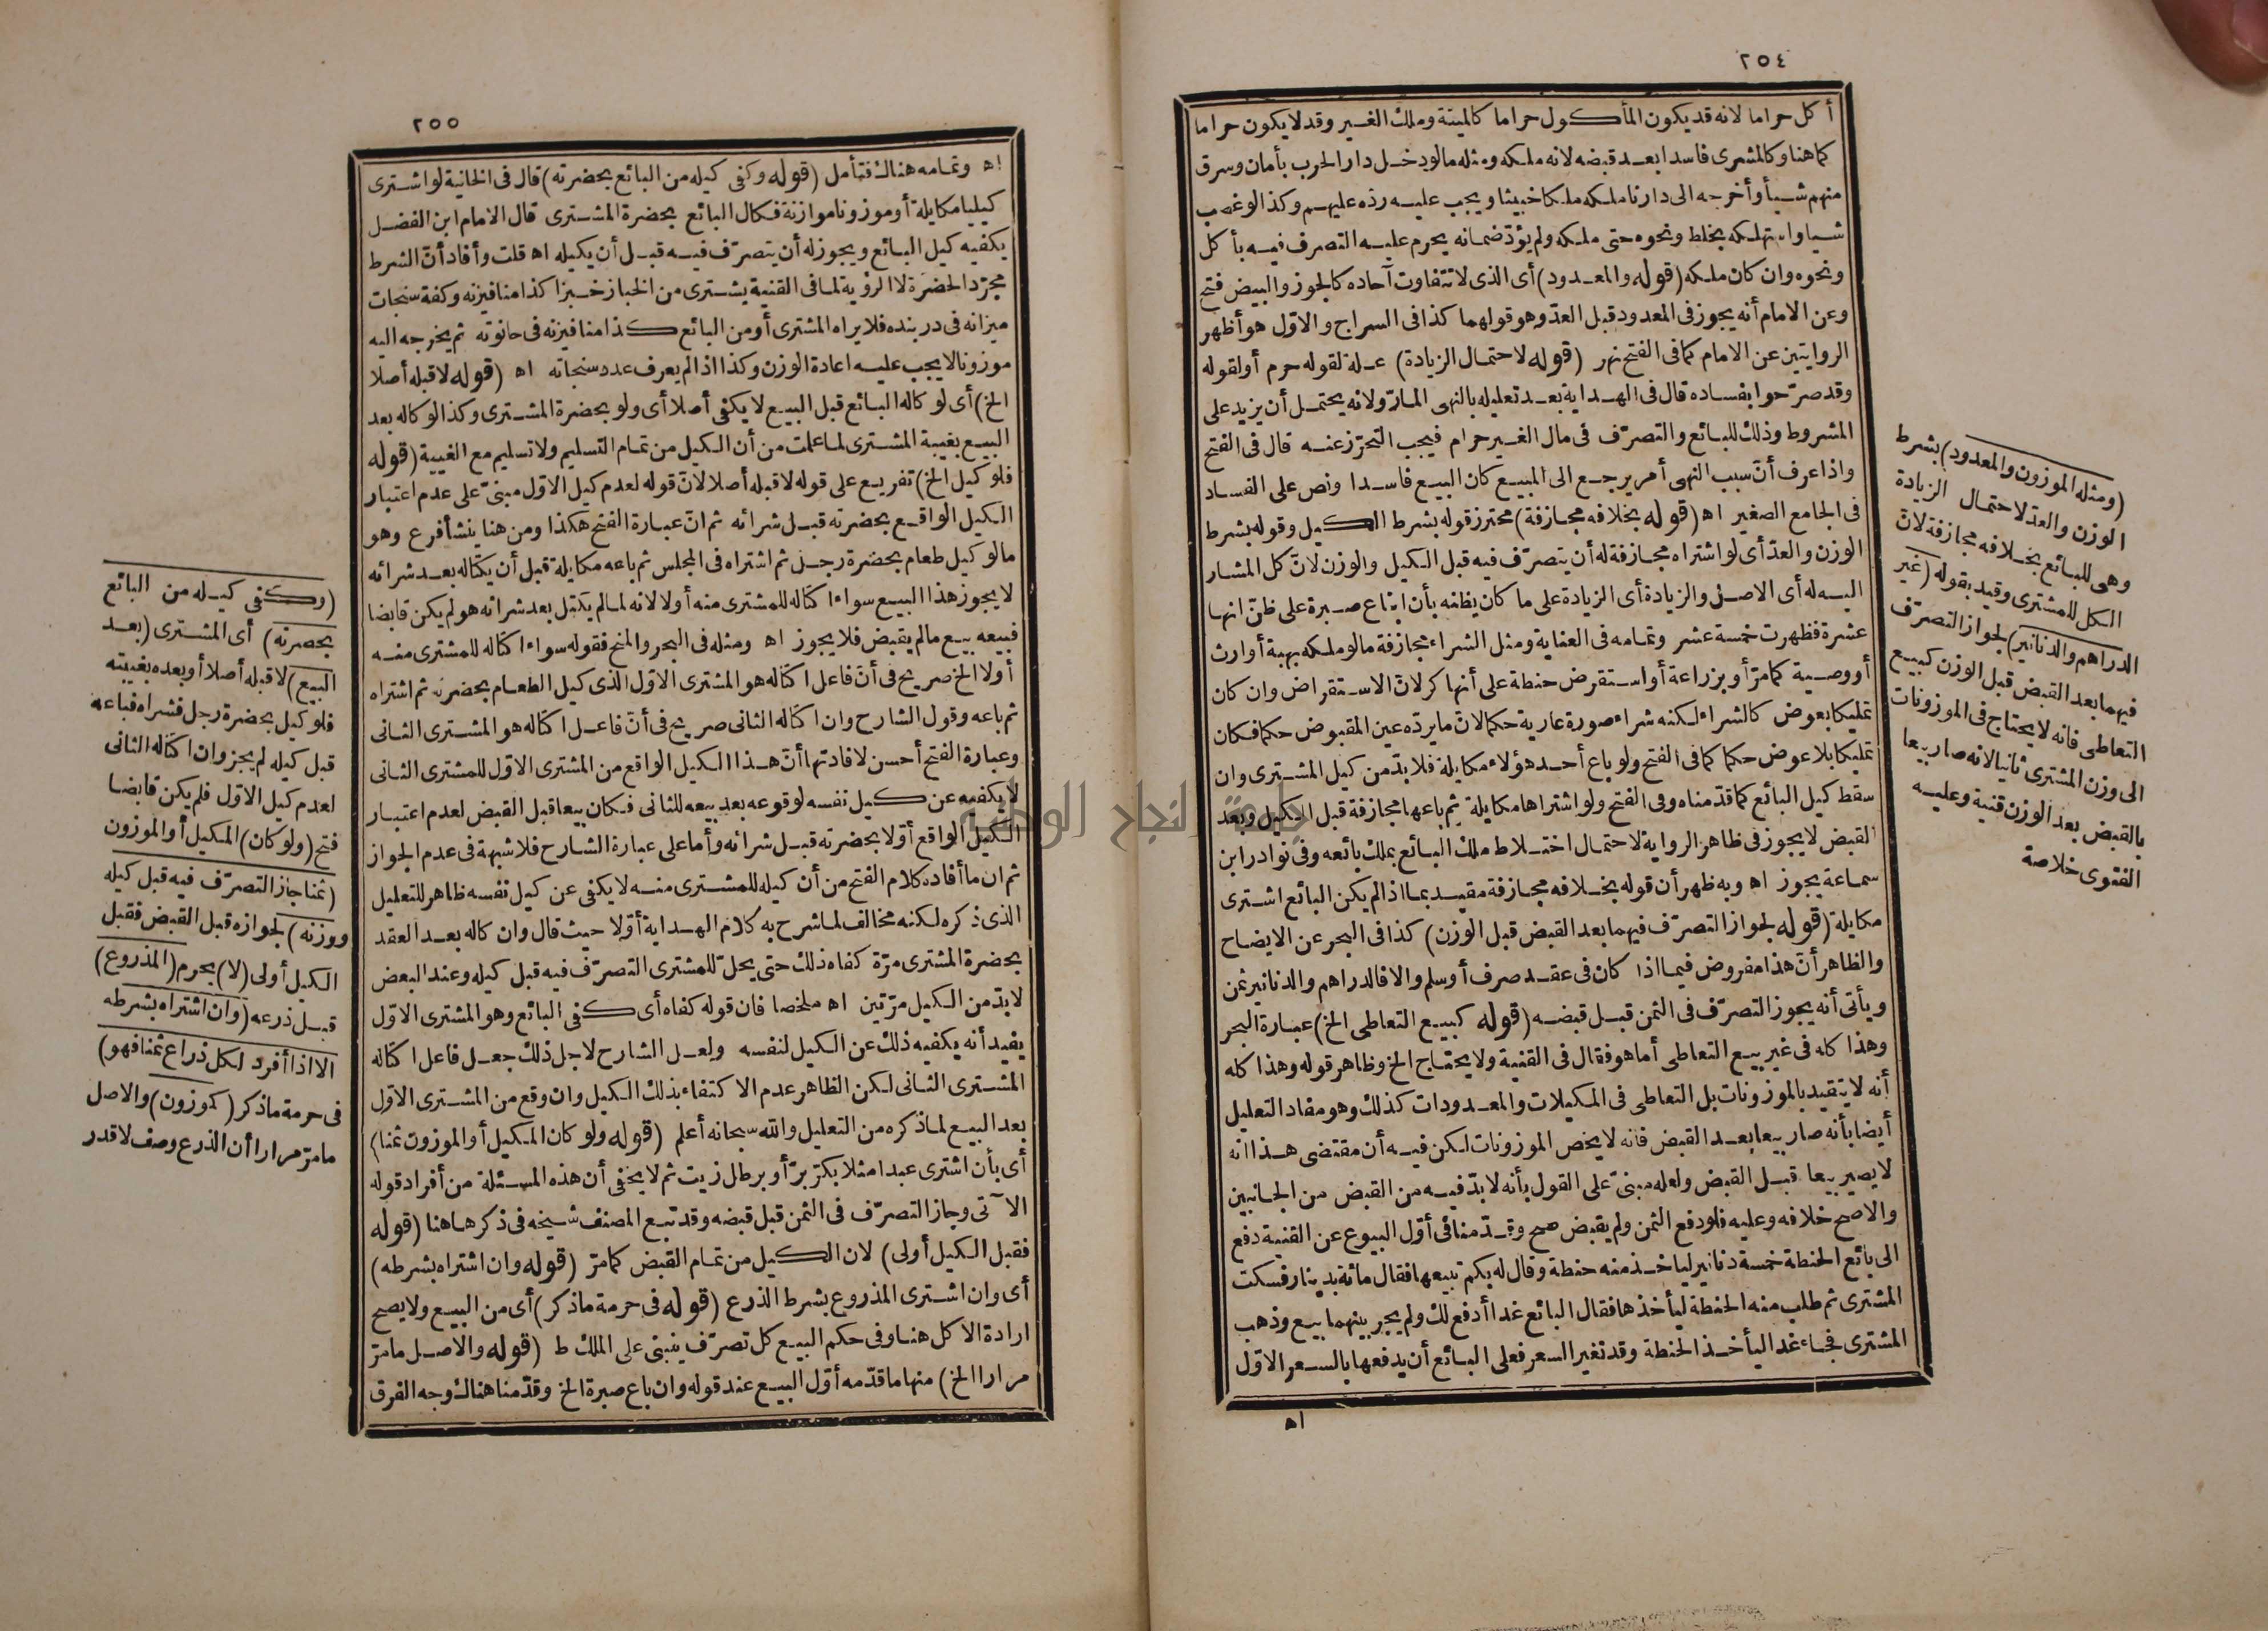 ٢٥٤
أكل حراما لانه قد يكون المأكول حراما كالميتة وملك الغير وقد لا يكون حراما
كما هنا وكالمشرى فاسدا بعد قبضه لانه ملكه ومثله مالو دخل دار الحرب بأمان وسرق
منهم شيأ وأخرجه الى دارنا ملكه ملكا خبيثا ويجب عليه رده عليهم وكذا لو غصب
شيأ واستهلكه بخلط ونحوه حتى ملكه ولم يؤد ضمانه يحرم عليه التصرف فيه بأكل
ونحوه وان كان ملكه (قوله والمعدود) أى الذى لا تتفاوت آحاده كالجوز والبيض فتح
وعن الامام أنه يجوز فى المعدود قبل العدّ وهو قولهما كذا فى السراج والاوّل هو أظهر
الروايتين عن الامام كما فى الفتح نهر (قوله لاحتمال الزيادة) علة لقوله حرم أو لقوله
وقد صرّحوا بفساده قال فى الهداية بعد تعليله بالنهى المارّ ولانه يحتمل أن يزيد على
المشروط وذلك للبائع والتصرّف فى مال الغير حرام فيجب التحرّز عنه قال فى الفتح
واذا عرف أنّ سبب النهى أمر يرجع الى المبيع كان البيع فاسدا ونص على الفساد
فى الجامع الصغير اه (قوله بخلافه مجازفة) محترز قوله بشرط الكيل وقوله بشرط
الوزن والعدّ أى لو اشتراه مجازفة له أن يتصرّف فيه قبل الكيل والوزن لانّ كل المشار
اليه له أى الاصل والزيادة أى الزيادة على ما كان يظنه بأن ابتاع صبرة على ظنّ انها
عشرة فظهرت خمسة عشر وتمامه فى العناية ومثل الشراء مجازفة مالو ملكه بهبة أو ارث
أو وصية كما مرّ أو بزراعة أو استقرض حنطة على أنها كر لانّ الاستقراض وان كان
تمليكا بعوض كالشراء لكنه شراء صورة عارية حكما لانّ ما يردّه عين المقبوض حكما فكان
تمليكا بلا عوض حكما كما فى الفتح ولو باع أحد هؤلاء مكايلة فلا بدّ من كيل المشترى وان
سقط كيل البائع كما قدّمناه وفى الفتح ولو اشتراها مكايلة ثم باعها مجازفة قبل الكيل وبعد
القبض لا يجوز فى ظاهر الرواية لاحتمال اختلاط ملك البائع بملك بائعه وفى نوادر ابن
سماعة يجوز اه وبه ظهر أن قوله بخلافه مجازفة مقيد بما اذا لم يكن البائع اشترى
مكايلة (قوله لجواز التصرّف فيهما بعد القبض قبل الوزن) كذا فى البحر عن الايضاح
والظاهر أنّ هذا مفروض فيما اذا كان فى عقد صرف أو سلم والا فالدراهم والدنانير ثمن
ويأتى أنه يجوز التصرّف فى الثمن قبل قبضه (قوله كبيع التعاطى الخ) عبارة البحر
وهذا كله فى غير بيع التعاطى أما هو فقال فى القنية ولا يحتاج الخ وظاهر قوله وهذا كله
أنه لا يتقيد بالموزونات بل التعاطى فى المكيلات والمعدودات كذلك وهو مفاد التعليل
أيضا بأنه صار بيعا بعد القبض فانه لا يخص الموزونات لكن فيه أن مقتضى هذا انه
لا يصير بيعا قبل القبض ولعله مبنىّ على القول بأنه لا بدّ فيه من القبض من الجانبين
والاصح خلافه وعليه فلو دفع الثمن ولم يقبض صح وقدّمنا فى أوّل البيوع عن القنية دفع
الى بائع الحنطة خمسة دنانير ليأخذ منه حنطة وقال له بكم تبيعها فقال مائة بدينار فسكت
المشترى ثم طلب منه الحنطة ليأخذها فقال البائع غدا أدفع لك ولم يجر بينهما بيع وذهب
المشترى فجاء غدا ليأخذ الحنطة وقد تغير السعر فعلى البائع أن يدفعها بالسعر الاوّل
اه
(ومثله الموزون والمعدود) بشرط
الوزن والعدّ لاحتمال الزيادة
وهى للبائع بخلافه مجازفة لانّ
الكل للمشترى وقيد بقوله (غير
الدراهم والدنانير) لجواز التصرّف
فيهما بعد القبض قبل الوزن كبيع
التعاطى فانه لا يحتاج فى الموزونات
الى وزن المشترى ثانيا لانه صار بيعا
بالقبض بعد الوزن قنية وعليه
الفتوى خلاصة
٢٥٥
اه وتمامه هناك فتأمل (قوله وكفى كيله من البائع بحضرته) قال فى الخانية لو اشترى
كيليا مكايلة أو موزونا موازنة فكال البائع بحضرة المشترى قال الامام ابن الفضل
يكفيه كيل البائع ويجوز له أن يتصرّف فيه قبل أن يكيله اه قلت وأفاد أنّ الشرط
مجرّد الحضرة لا الرؤية لما فى القنية يشترى من الخباز خبزا كذا منا فيزنه وكفة سنجات
ميزانه فى دربنده فلا يراه المشترى أو من البائع كذا منا فيزنه فى حانوته ثم يخرجه اليه
موزونا لا يجب عليه اعادة الوزن وكذا اذا لم يعرف عدد سنجاته اه (قوله لا قبله أصلا
الخ) أى لو كاله البائع قبل البيع لا يكفى أصلا أى ولو بحضرة المشترى وكذا لو كاله بعد
البيع بغيبة المشترى لما علمت من أن الكيل من تمام التسليم ولا تسليم مع الغيبة (قوله
فلو كيل الخ) تفريع على قوله لا قبله أصلا لانّ قوله لعدم كيل الاوّل مبنىّ على عدم اعتبار
الكيل الواقع بحضرته قبل شرائه ثم انّ عبارة الفتح هكذا ومن هنا ينشأ فرع وهو
مالو كيل طعام بحضرة رجل ثم اشتراه فى المجلس ثم باعه مكايلة قبل أن يكتاله بعد شرائه
لا يجوز هذا البيع سواء اكتاله للمشترى منه أو لا لانه لما لم يكتل بعد شرائه هو لم يكن قابضا
فبيعه بيع مالم يقبض فلا يجوز اه ومثله فى البحر والمنح فقوله سواء اكتاله للمشترى منه
أو لا الخ صريح فى أنّ فاعل اكتاله هو المشترى الاوّل الذى كيل الطعام بحضرته ثم اشتراه
ثم باعه وقول الشارح وان اكتاله الثانى صريح فى أنّ فاعل اكتاله هو المشترى الثانى
وعبارة الفتح أحسن لافادتها أنّ هذا الكيل الواقع من المشترى الاوّل للمشترى الثانى
لا يكفيه عن كيل نفسه لوقوعه بعد بيعه للثانى فكان بيعا قبل القبض لعدم اعتبار
الكيل الواقع أوّلا بحضرته قبل شرائه وأما على عبارة الشارح فلا شبهة فى عدم الجواز
ثم ان ما أفاده كلام الفتح من أن كيله للمشترى منه لا يكفى عن كيل نفسه ظاهر للتعليل
الذى ذكره لكنه مخالف لما شرح به كلام الهداية أوّلا حيث قال وان كاله بعد العقد
بحضرة المشترى مرّة كفاه ذلك حتى يحلّ للمشترى التصرّف فيه قبل كيله وعند البعض
لا بدّ من الكيل مرّتين اه ملخصا فان قوله كفاه أى كفى البائع وهو المشترى الاوّل
يفيد أنه يكفيه ذلك عن الكيل لنفسه ولعل الشارح لاجل ذلك جعل فاعل اكتاله
المشترى الثانى لكن الظاهر عدم الاكتفاء بذلك الكيل وان وقع من المشترى الاوّل
بعد البيع لما ذكره من التعليل والله سبحانه أعلم (قوله ولو كان المكيل أو الموزون ثمنا)
أى بأن اشترى عبدا مثلا بكرّ برّ أو برطل زيت ثم لا يخفى أن هذه المسئلة من أفراد قوله
الآتى وجاز التصرّف فى الثمن قبل قبضه وقد تبع المصنف شيخه فى ذكرها هنا (قوله
فقبل الكيل أولى) لان الكيل من تمام القبض كما مرّ (قوله وان اشتراه بشرطه)
أى وان اشترى المذروع بشرط الذرع (قوله فى حرمة ماذكر) أى من البيع ولا يصح
ارادة الاكل هنا وفى حكم البيع كل تصرّف ينبنى على الملك ط (قوله والاصل مامرّ
مرارا الخ) منها ماقدّمه أوّل البيع عند قوله وان باع صبرة الخ وقدّمنا هناك وجه الفرق
(وكفى كيله من البائع
بحضرته) أى المشترى (بعد
البيع) لا قبله أصلا أو بعده بغيبته
فلو كيل بحضرة رجل فشراه فباعه
قبل كيله لم يجز وان اكتاله الثانى
لعدم كيل الاوّل فلم يكن قابضا
فتح (ولو كان) المكيل أو الموزون
(ثمنا جاز التصرّف فيه قبل كيله
ووزنه) لجوازه قبل القبض فقبل
الكيل أولى (لا) يحرم (المذروع)
قبل ذرعه (وان اشتراه بشرطه
الا اذا أفرد لكل ذراع ثمنا فهو)
فى حرمة ماذكر (كموزون) والاصل
مامرّ مرارا أن الذرع وصف لا قدر
جامعة النجاح الوطنية